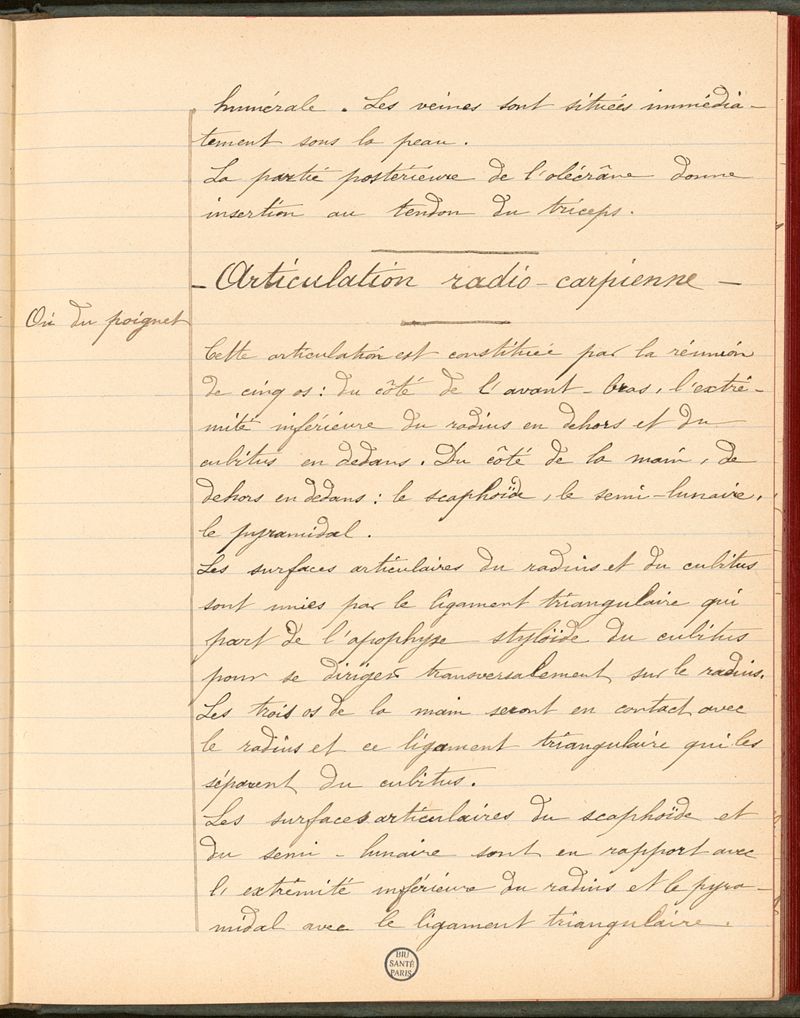 humérale. Les veines sont situées immédia-
tement sous la peau.
La partie postérieure de l'olécrâne donne
insertion au tendon du triceps.
- Articulation radio-carpienne -
Ou du poignet
Cette articulation est constituée par la réunion
de cinq os : du côté de l'avant-bras, l'extré-
mité inférieure du radius en dehors et du
cubitus en dedans. Du côté de la main, de
dehors en dedans : le scaphoïde, le semi-lunaire,
le pyramidal.
Les surfaces articulaires du radius et du cubitus
sont unies par le ligament triangulaire qui
part de l'apophyse styloïde du cubitus
pour se diriger transversalement sur le radius.
Les trois os de la main seront en contact avec
le radius et ce ligament triangulaire qui les
séparent du cubitus.
Les surfaces articulaires du scaphoïde et
du semi-lunaire sont en rapport avec
l'extrémité inférieure du radius et le pyra-
midal avec le ligament triangulaire.
BIU
SANTÉ
PARIS